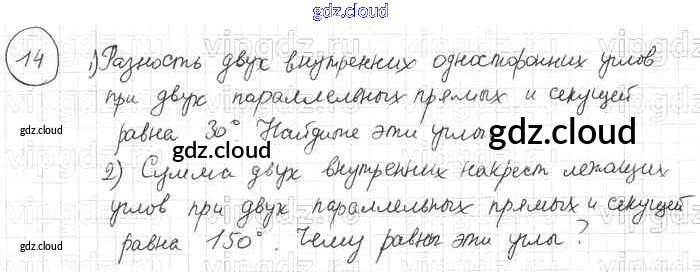 gdz.cloud
14 1) Разность двух внутренних односторонних углов
при двух параллельных прямых и секущей
gdz.cloud равна 30° Найдите эти углы gdz.cloud
gdz.cloud
2) Сумма двух внутренних накрест лежащих
углов при двух параллельных прямых и секущей
gdz.cloud равна 150°. Чему равны эти углы?
gdz.cloud